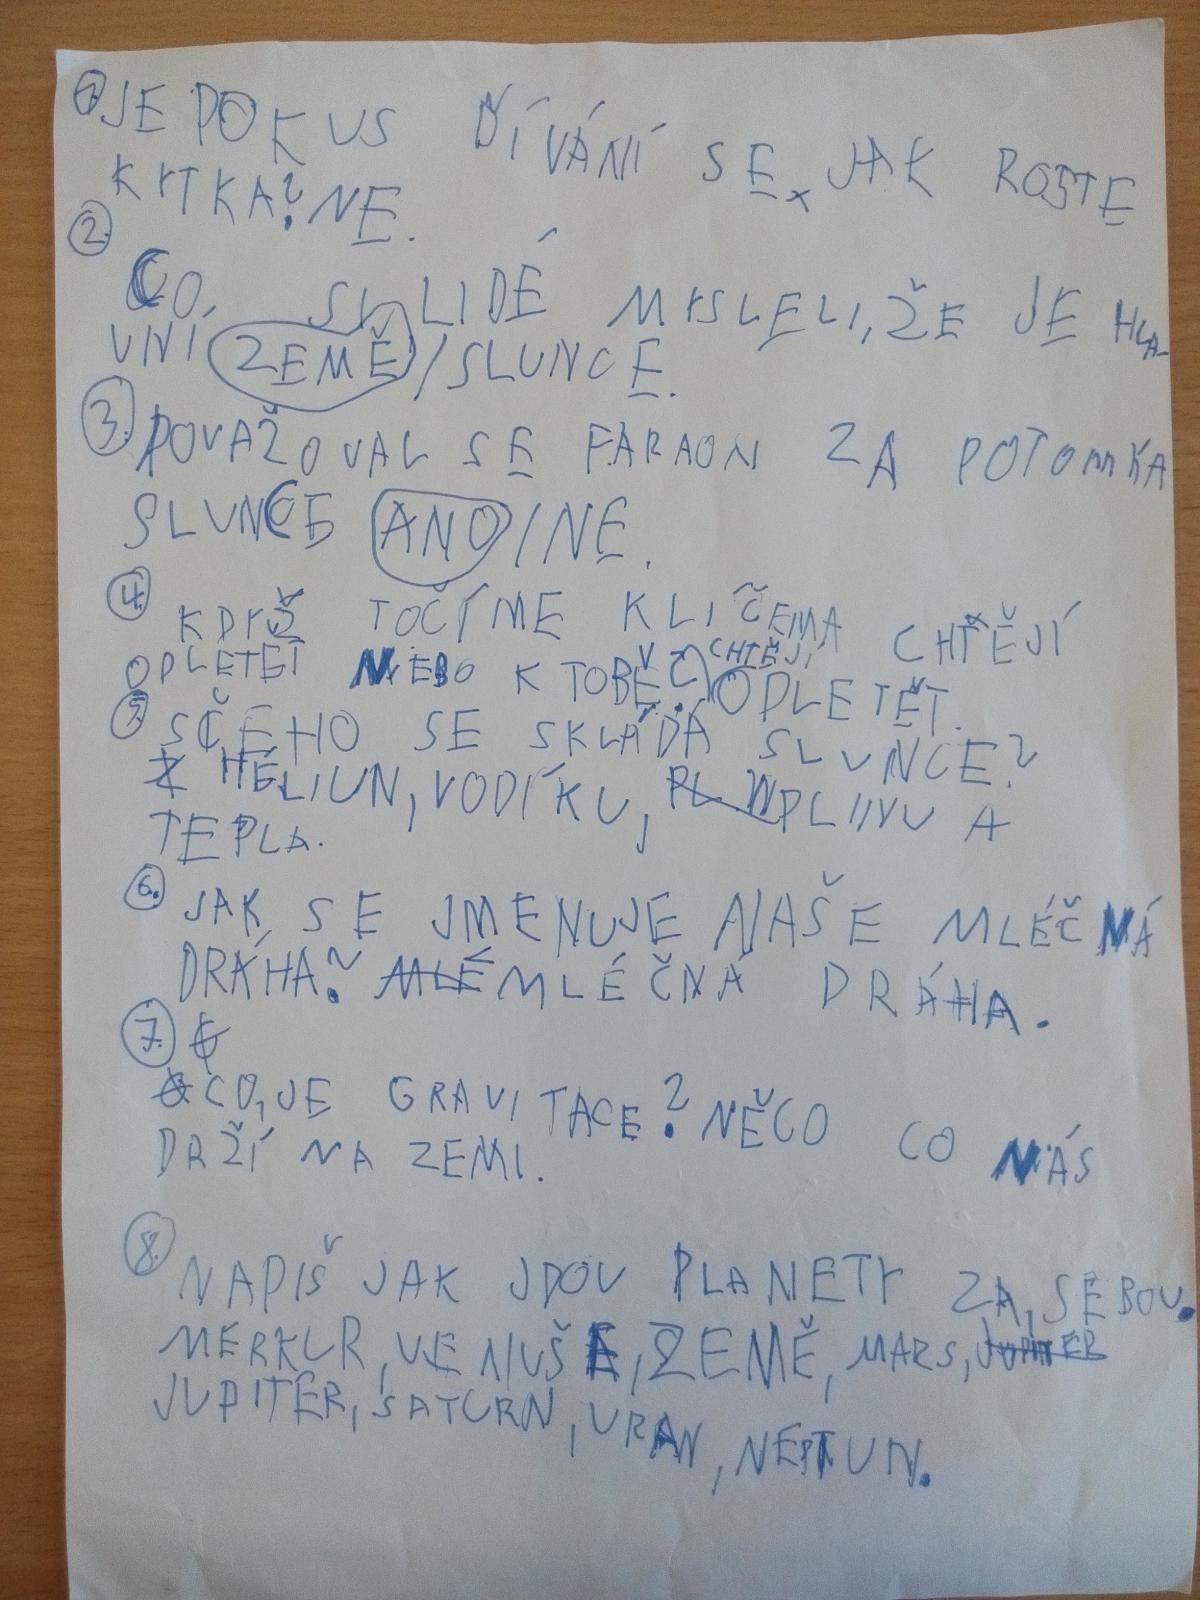 1. JE POKUS DÍVÁNÍ SE, JAK ROSTE
KYTKA? NE.
2.
CO, SI LIDÉ MYSLELI, ŽE JE HLA-
VNÍ ZEMĚ/SLUNCE.
3. POVAŽOVAL SE FARAON ZA POTOMKA
SLUNCE ANO/NE.
4. KDYŽ TOČÍME KLÍČEMA CHTĚJÍ
ODLETĚT NEBO K TOBĚ? CHTĚJÍ ODLETĚT.
5. SČEHO SE SKLÁDÁ SLUNCE?
Z HÉLIUN, VODÍKU, PL WPLINU A
TEPLA.
6. JAK SE JMENUJE NAŠE MLÉČNÁ
DRÁHA? MLÉ MLÉČNÁ DRÁHA.
7. C
CO, JE GRAVITACE? NĚCO CO NÁS
DRŽÍ NA ZEMI.
8. NAPIŠ JAK JDOU PLANETY ZA, SEBOU.
MERKUR, VENUŠE, ZEMĚ, MARS, JUPITER
JUPITER, SATURN, URAN, NEPTUN.